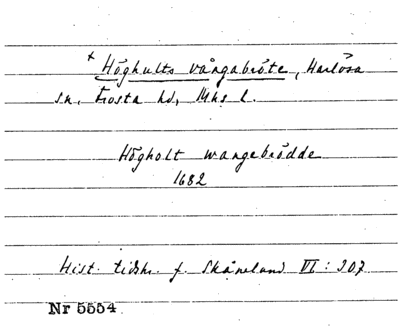 * Höghults vångabröte, Harlösa
sn, Frosta hd, Mhs l.
Högholt wangebrödde
1682
Hist. tidskr. f. Skåneland VI : 307
Nr 5554.